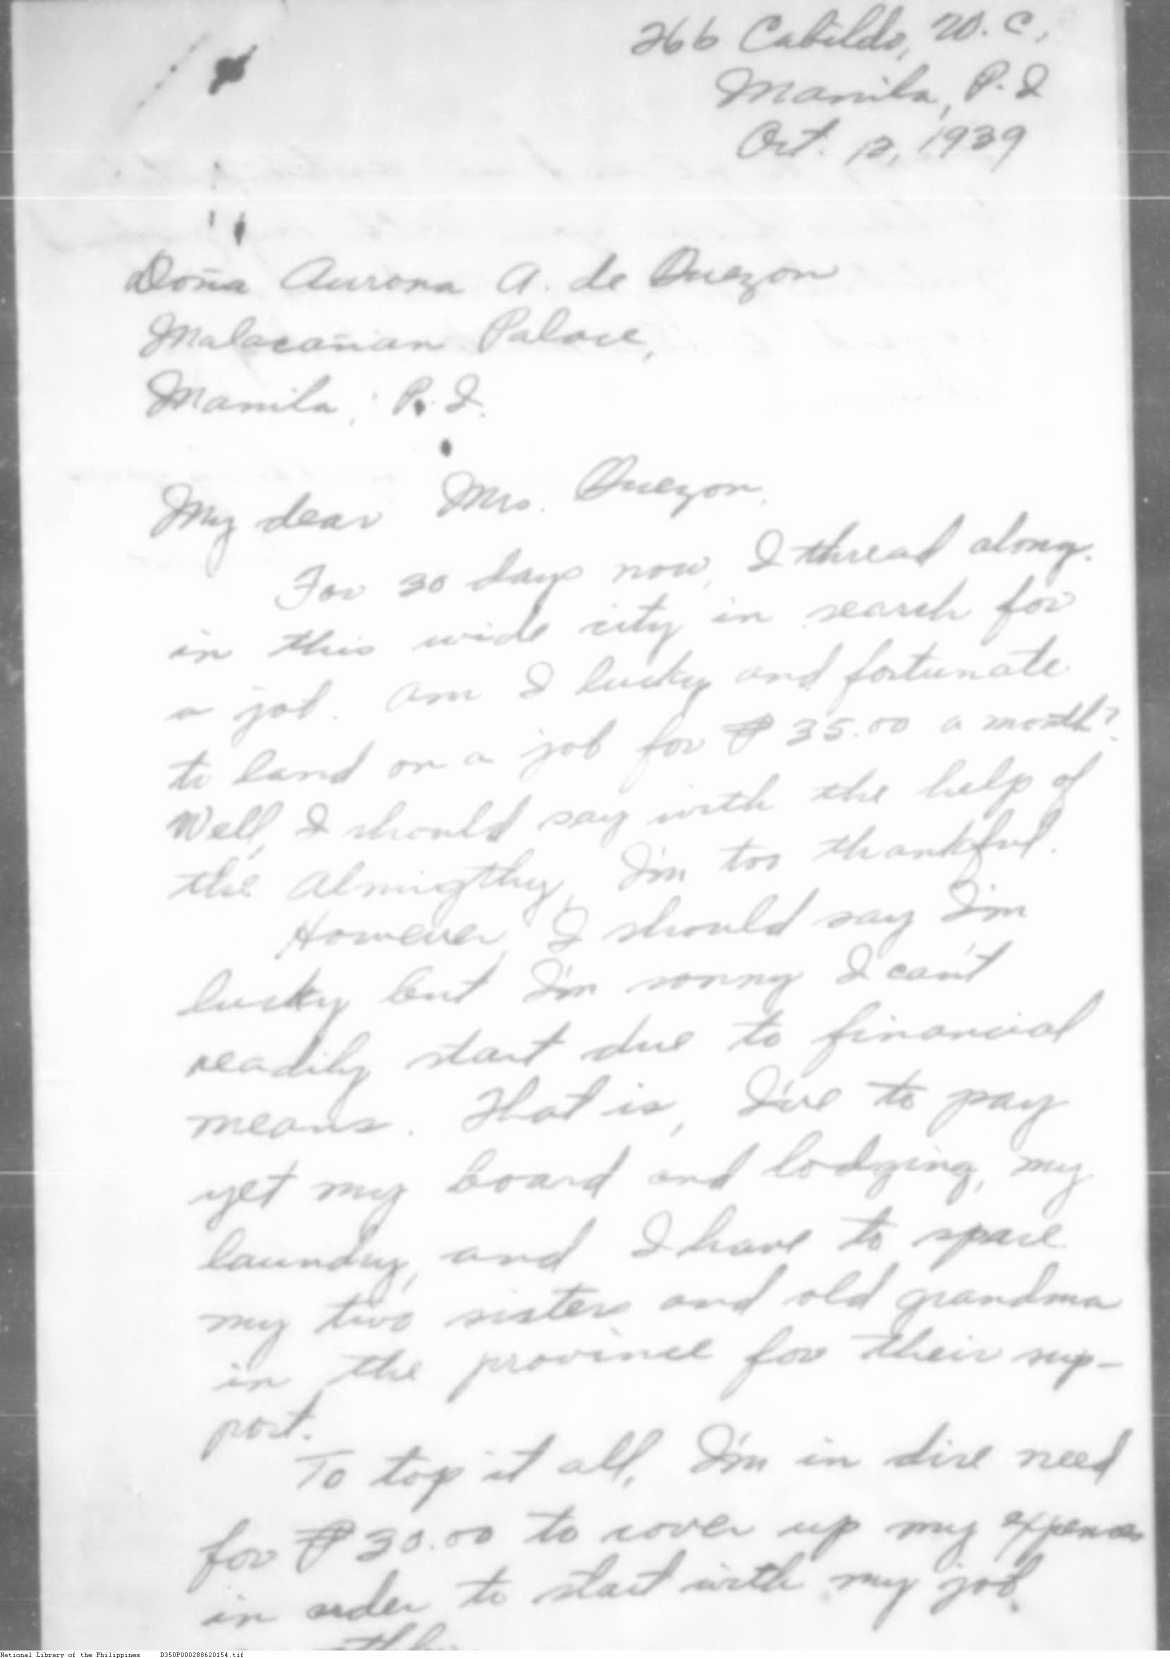 266 Cabildo, W.C.,
Manila, P.I
Oct. 12, 1939
Doña Aurora A. de Quezon
Malacañan Palace,
Manila, P.I.
My dear Mrs. Quezon,
For 30 days now, I thread along
in this wide city in search for
a job. Am I lucky and fortunate
to land on a job for ₱35.00 a month?
Well, I should say with the help of
the Almigthy, I'm too thankful.
However, I should say I'm
lucky but I'm sorry I can't
readily start due to financial
means. That is, I've to pay
yet my board and lodging, my
laundry, and I have to spare
my two sisters and old grandma
in the province for their sup-
port.
To top it all, I'm in dire need
for ₱30.00 to cover up my expenses
in order to start with my job.
National Library of the Philippines D350P000288620154.tif